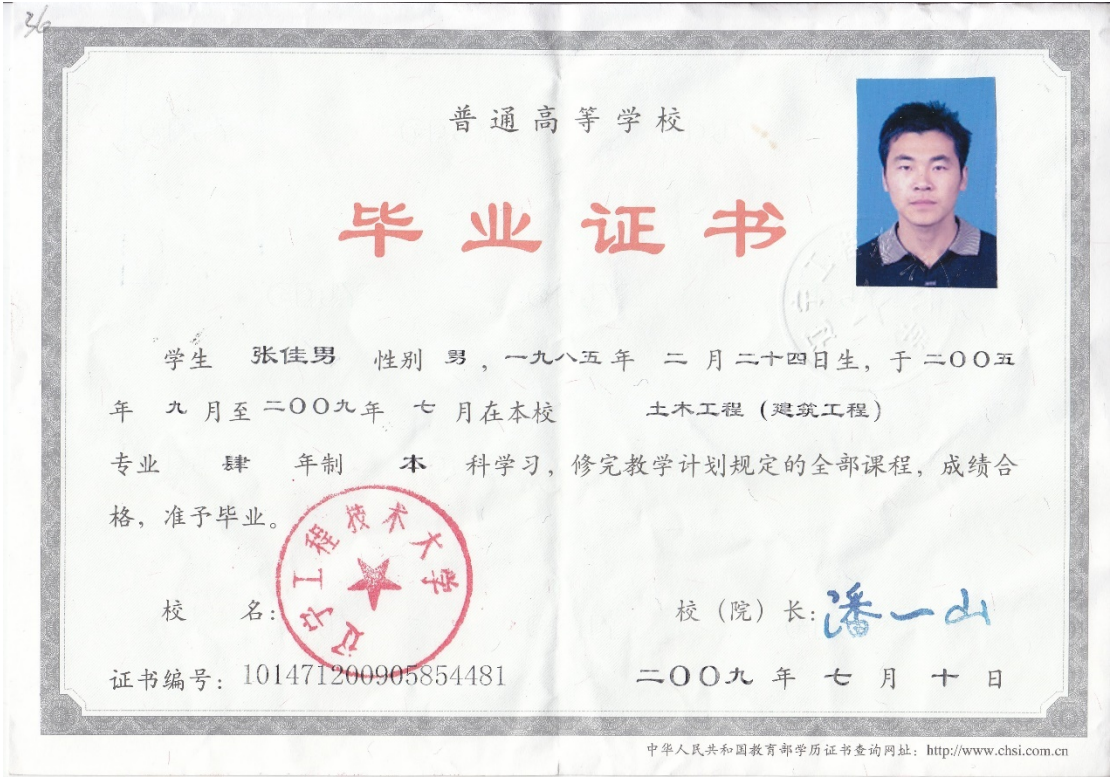 36
普通高等学校
毕业证书
学生 张佳男 性别 男，一九八五年 二月二十四日生，于二〇〇五
年 九月至二〇〇九年 七月在本校 土木工程（建筑工程）
专业 肆 年制 本 科学习，修完教学计划规定的全部课程，成绩合
格，准予毕业。
辽宁工程技术大学
校 名：
校（院）长：潘一山
证书编号：101471200905854481
二〇〇九年 七月 十日
中华人民共和国教育部学历证书查询网址：http://www.chsi.com.cn